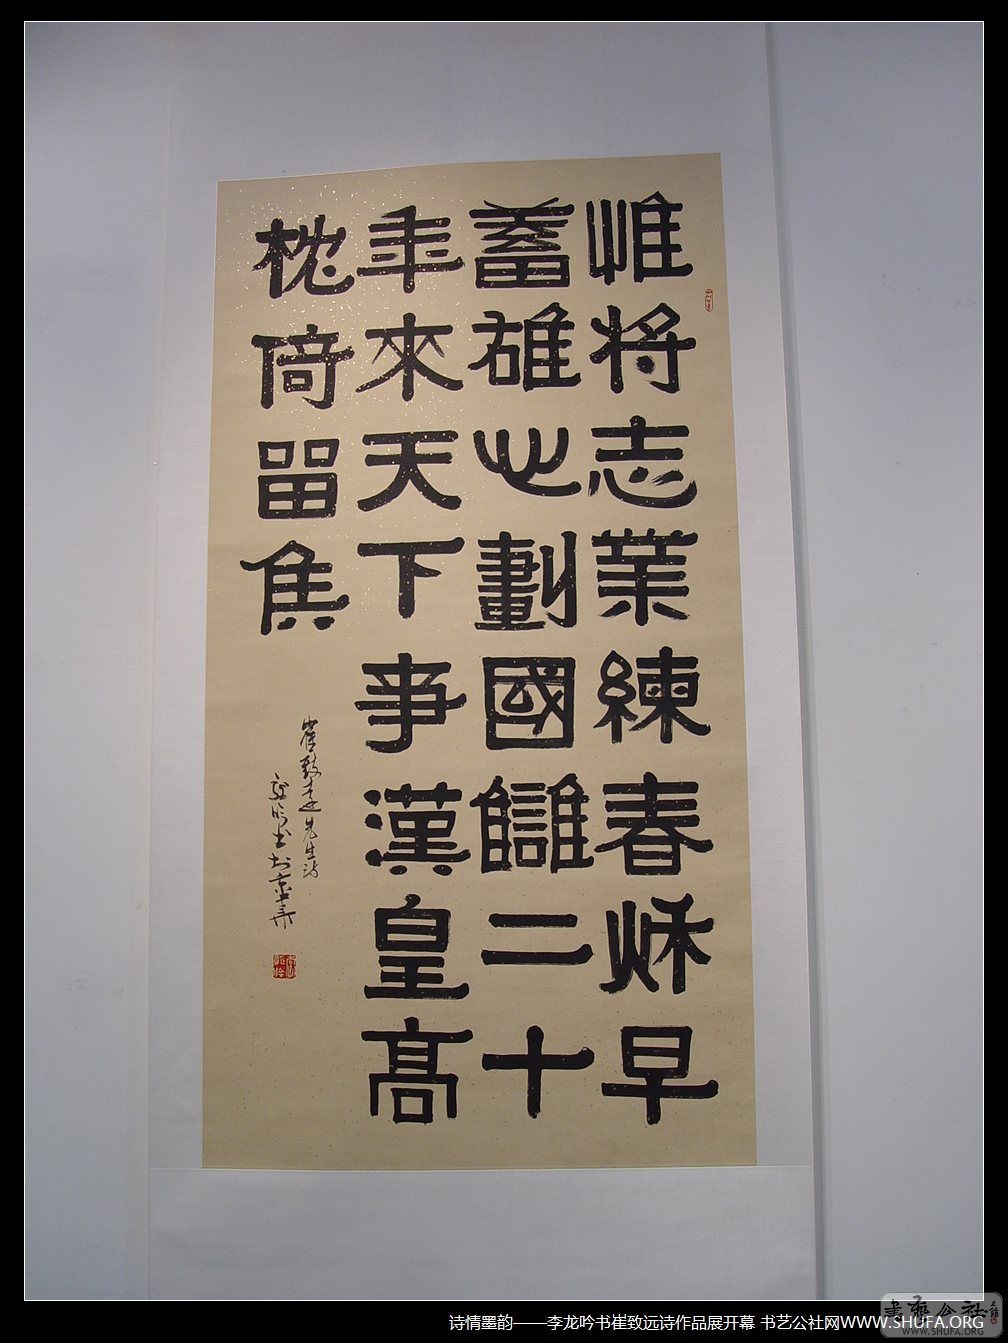 惟将志業練春秌早
蓄雄心劃國讎二十
年來天下事漢皇高
枕倚留侯
崔致遠先生诗
龍吟书於京華
诗情墨韵——李龙吟书崔致远诗作品展开幕 书艺公社网WWW.SHUFA.ORG
書藝公社
WWW.SHUFA.ORG